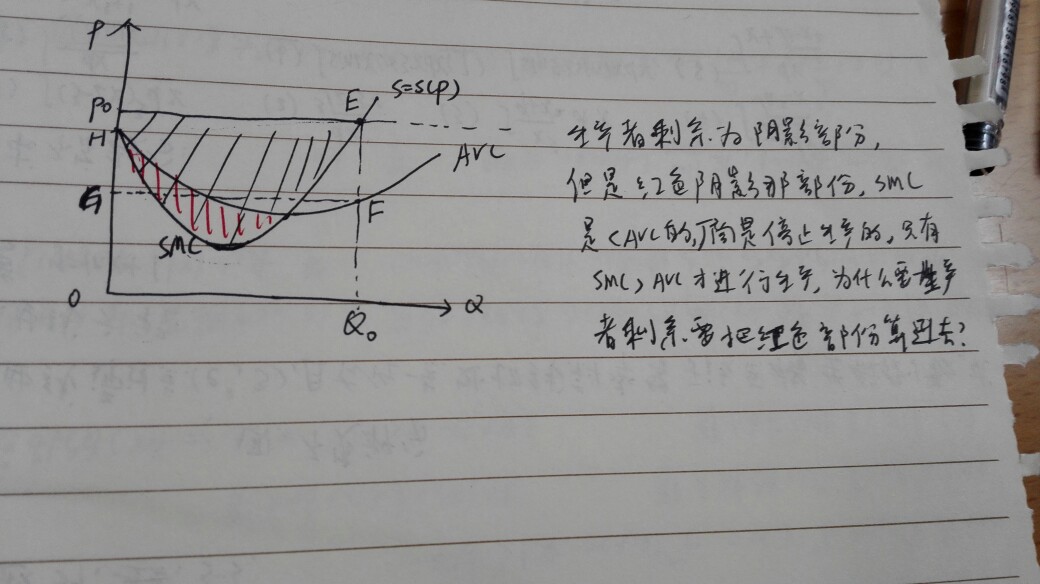 P
P₀
E
S=S(P)
H
AVC
G
F
SMC
O
Q₀
Q
生产者剩余为阴影部份,
但是红色阴影那部份, SMC
是<AVC的,厂商是停止生产的, 只有
SMC>AVC才进行生产, 为什么 生产
者剩余要把红色部份算进去?